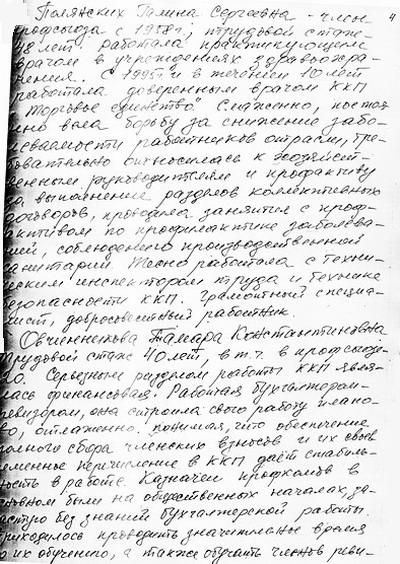 Полянских Галина Сергеевна - член 4
профсоюза с 1958 г., трудовой стаж -
48 лет работала практикующим
врачом в учреждениях здравоохра-
нения. С 1995 г. и в течение 10 лет
работала доверенным врачом ККП
"Торговое единство". Слаженно, постоя
но вела борьбу за снижение забо-
леваемости работников отрасли, тре-
бовательно относилась к хозяйст-
венным руководителям и профактиву
за выполнение разделов коллективных
договоров, проводила занятия с проф-
активом по профилактике заболева-
ний, соблюдению производственной
санитарии. Тесно работала с техни-
ческим инспектором труда и технике
безопасности ККП. Грамотный специа-
лист, добросовестный работник.
Овчинникова Тамара Константиновна
Трудовой стаж 40 лет, в т.ч. в профсоюзе-
20. Серьезным разделом работы ККП явля-
лась финансовая. Работая бухгалтером-
ревизором, она строила свою работу плано-
во, отлаженно. понимая, что обеспечение
полного сбора членских взносов и их свое
временные перечисление в ККП даёт стабиль-
ность в работе. Казначеи профкомов в
основном были на общественных началах, за-
частую без знаний бухгалтерской работы.
Приходилось проводить значительное время
по их обучению, а также обучать членов реви-